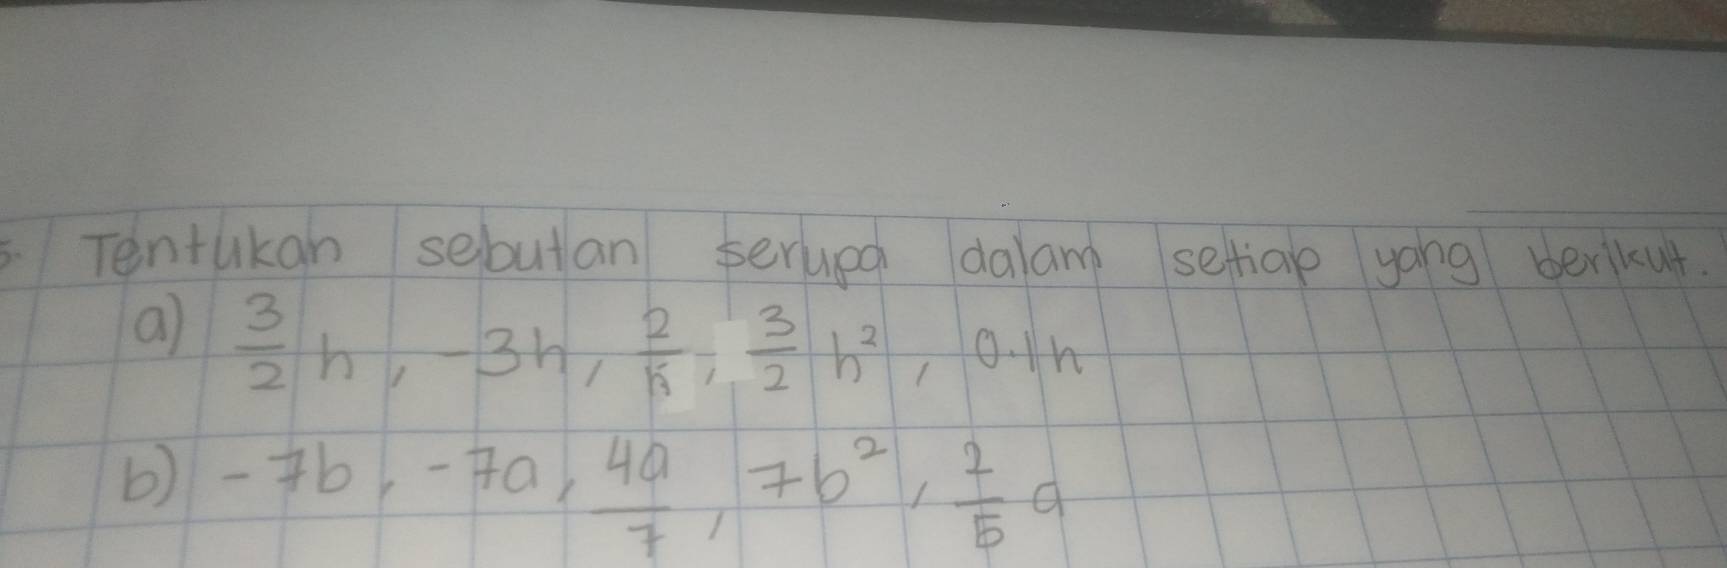 5. Tentukan sebutan serupa dalam setiap yang berikut.
a) 3/2 h, -3h, 2/h, 3/2 h², 0.1h
b) -7b, -7a, 4a/7, 7b², 2/5 a